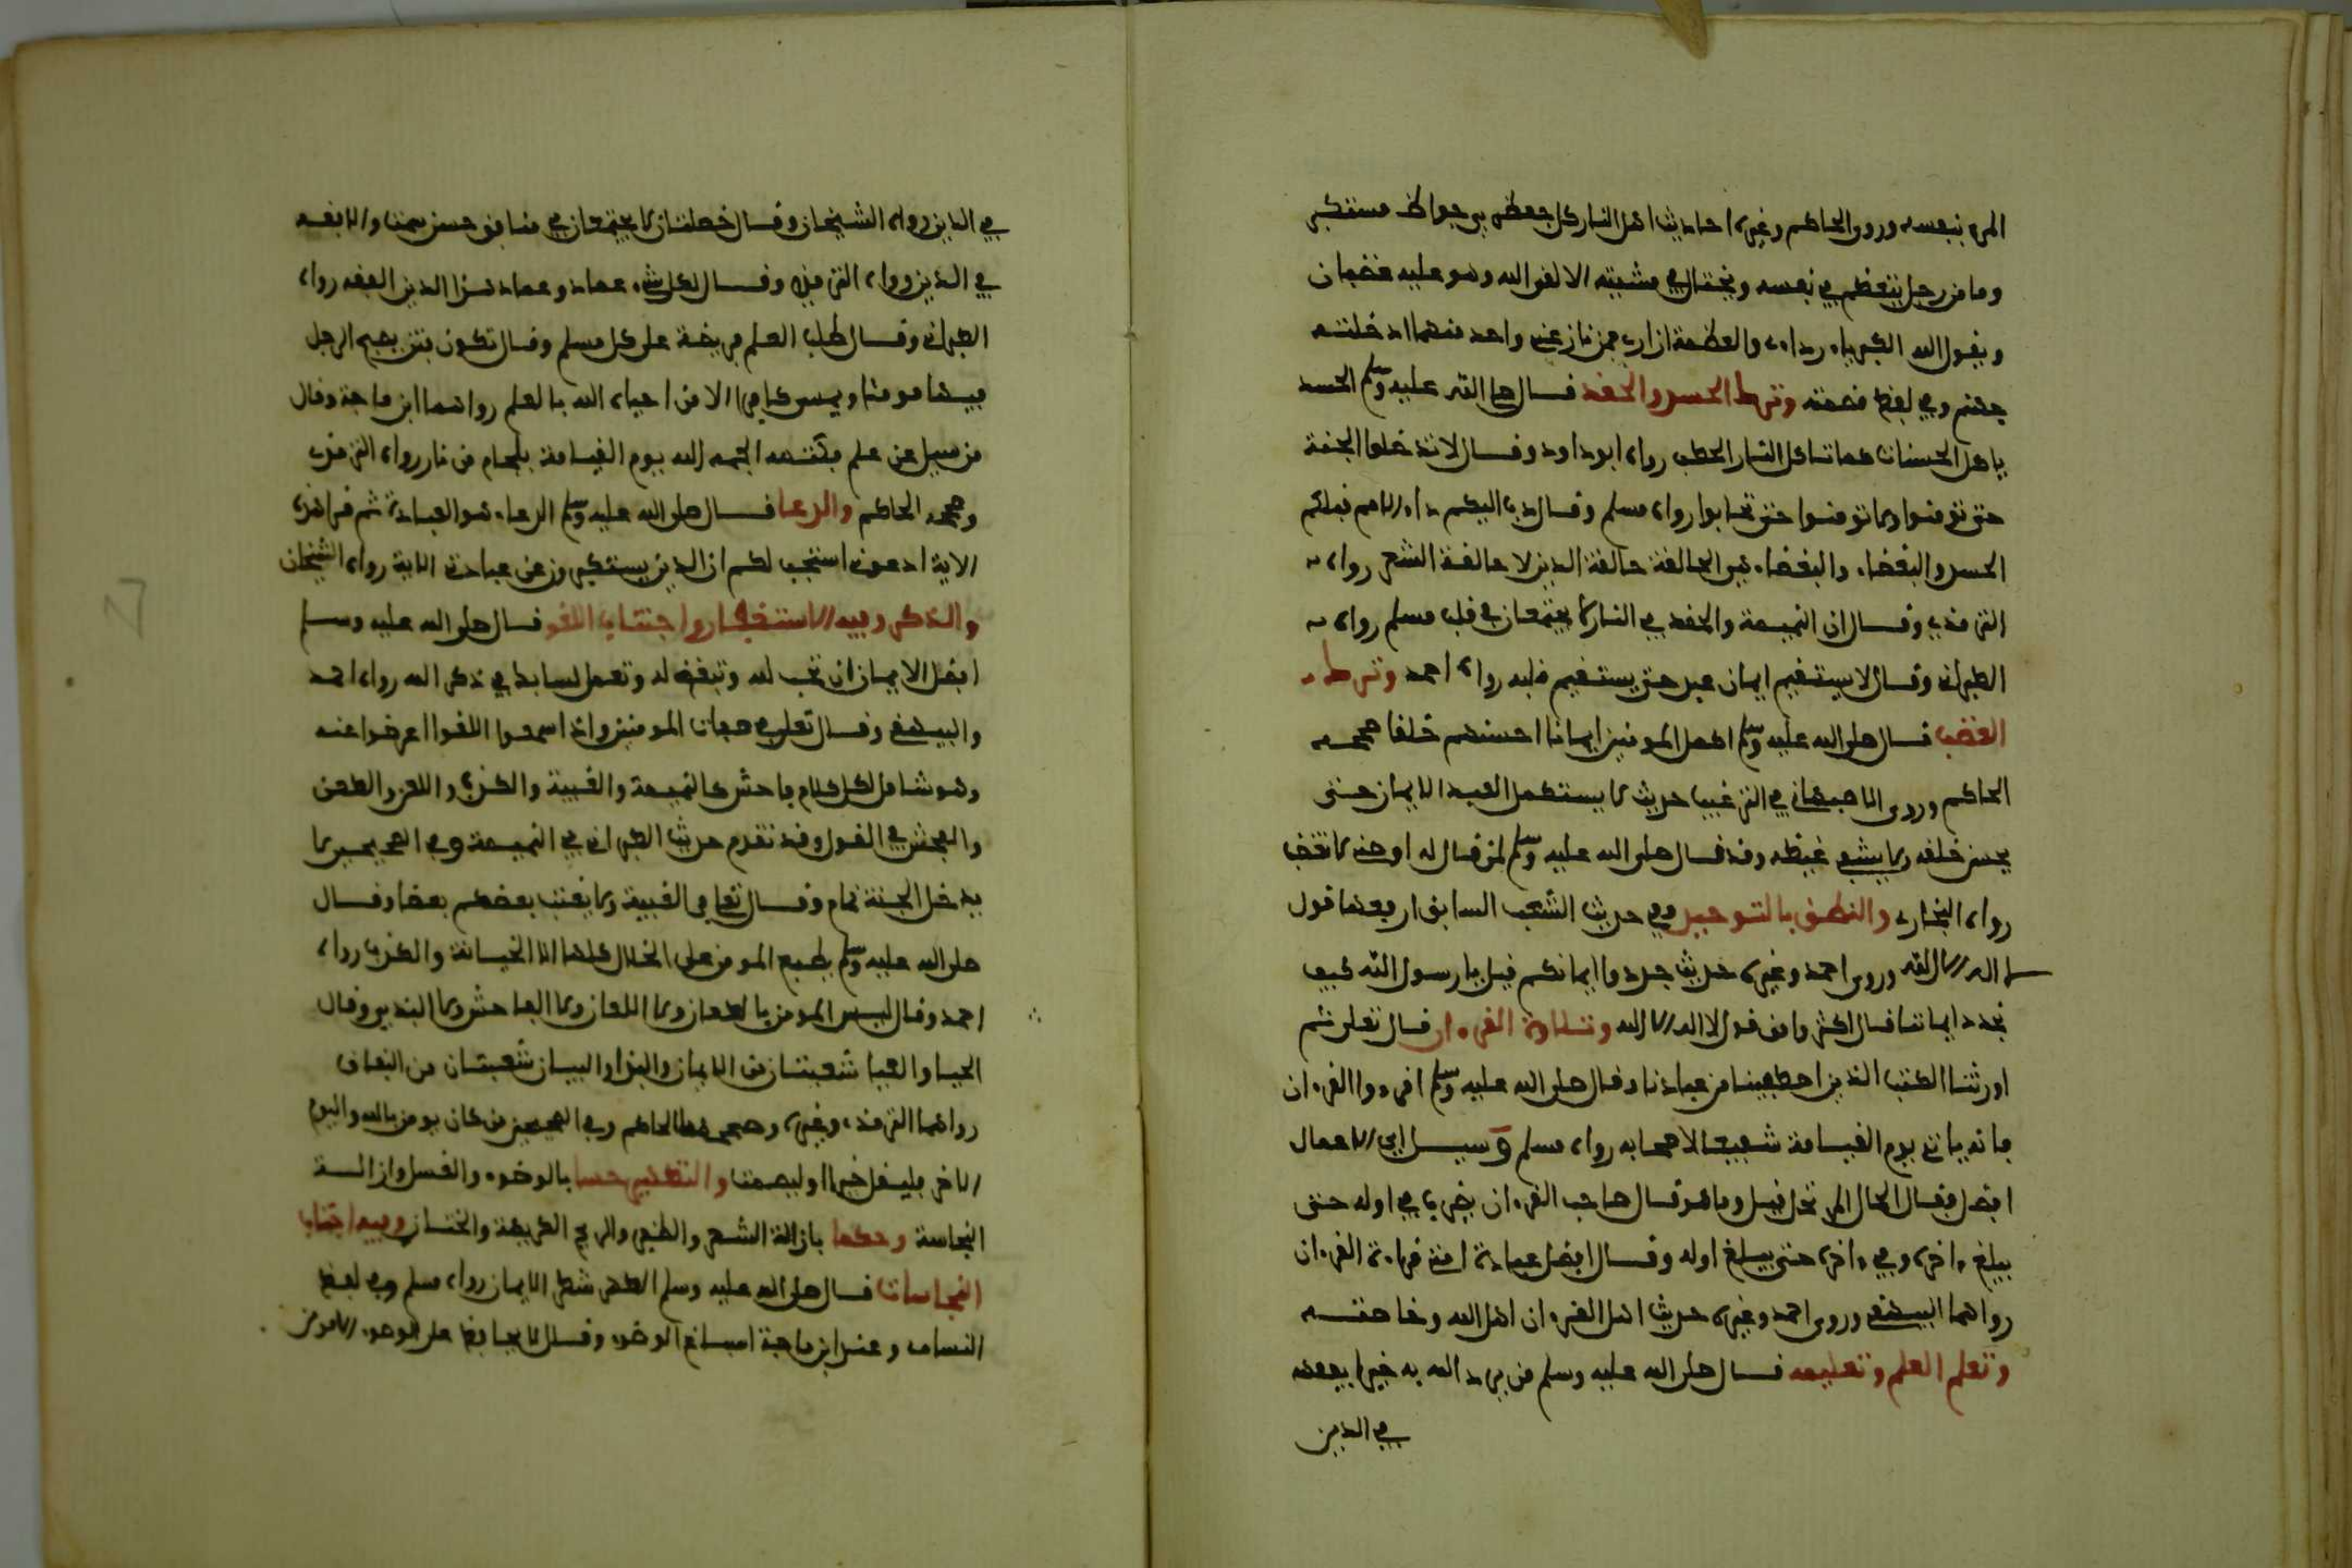 المرء بنفسه وروى الحاكم وغيره احاديث اهل النار كل جعظري جواظ مستكبر
وما من رجل يتعظم في نفسه ويختال في مشيته الا لقي الله وهو عليه غضبان
ويقول الله الكبرياء رداءي والعظمة ازاري فمن نازعني واحد منهما ادخلته
جهنم وفي لفظ قصمته وترك الحسد والحقد قال صلى الله عليه وسلم الحسد
ياكل الحسنات كما تاكل النار الحطب رواه ابو داود وقال لا تدخلوا الجنة
حتى تؤمنوا ولا تؤمنوا حتى تحابوا رواه مسلم وقال دب اليكم داء الامم قبلكم
الحسد والبغضاء والبغضاء هي الحالقة حالقة الدين لا حالقة الشعر رواه
الترمذي وقال ان النميمة والحقد في النار لا يجتمعان في قلب مسلم رواه
الطبراني وقال لا يستقيم ايمان عبد حتى يستقيم قلبه رواه احمد وترك
الغضب قال صلى الله عليه وسلم اكمل المومنين ايمانا احسنهم خلقا صححه
الحاكم وروى الاصبهاني في الترغيب حديث لا يستكمل العبد الايمان حتى
يحسن خلقه ولا يشفي غيظه وقد قال صلى الله عليه وسلم لمن قال له اوصني لا تغضب
رواه البخاري والنطق بالتوحيد وفي حديث الشعب السابق ارفعها قول
لا اله الا الله وروى احمد وغيره حديث جددوا ايمانكم قيل يا رسول الله كيف
نجدد ايماننا قال اكثروا من قول لا اله الا الله وتلاوة القرءان قال تعلى ثم
اورثنا الكتب الذين اصطفينا من عبادنا وقال صلى الله عليه وسلم اقرءوا القرءان
فانه ياتي يوم القيامة شفيعا لاصحابه رواه مسلم وسيل اي الاعمال
افضل فقال الحال المرتحل قيل وما هو قال صاحب القرءان يضرب في اوله حتى
يبلغ ءاخره وفي ءاخره حتى يبلغ اوله وقال افضل عبادة امتي قراءة القرءان
رواهما البيهقي وروى احمد وغيره حديث اهل القرءان اهل الله وخاصته
وتعلم العلم وتعليمه قال صلى الله عليه وسلم من يرد الله به خيرا يفقهه
في الدين
في الدين رواه الشيخان وقال خصلتان لا يجتمعان في منافق حسن سمت ولا فقه
في الدين رواه الترمذي وقال لكل شيء عماد وعماد هذا الدين الفقه رواه
الطبراني وقال طلب العلم فريضة على كل مسلم وقال تكون فتن يصبح الرجل
فيها مومنا ويمسي كافرا الا من احياه الله بالعلم رواهما ابن ماجة وقال
من سيل عن علم فكتمه الجمه الله يوم القيامة بلجام من نار رواه الترمذي
وصححه الحاكم والدعا قال صلى الله عليه وسلم الدعاء هو العبادة ثم قرا هذه
الاية ادعوني استجب لكم ان الذين يستكبرون عن عبادتي الاية رواه الشيخان
والذكر وفيه الاستغفار واجتناب اللغو قال صلى الله عليه وسلم
افضل الايمان ان تحب لله وتبغض له وتعمل لسانك في ذكر الله رواه احمد
والبيهقي وقال تعلى في صفات المومنين واذا سمعوا اللغوا اعرضوا عنه
وهو شامل لكل كلام فاحش كالنميمة والغيبة والكذب واللعن والطعن
والفحش في القول وقد تقدم حديث الطبراني في النميمة وفي الصحيحين لا
يدخل الجنة نمام وقال تعلى في الغيبة ولا يغتب بعضكم بعضا وقال
صلى الله عليه وسلم يطبع المومن على الخلال كلها الا الخيانة والكذب رواه
احمد وقال ليس المومن بالطعان ولا اللعان ولا الفاحش ولا البذي وقال
الحيا والعيا شعبتان من الايمان والبذا والبيان شعبتان من النفاق
رواهما الترمذي وغيره وصححهما الحاكم وفي الصحيحين من كان يومن بالله واليوم
الاخر فليقل خيرا او ليصمت والتطهير حسا بالوضوء والغسل وازالة
النجاسة وحكما بازالة الشعر والظفر والريح الكريهة والختان وفيه اجتناب
النجاسات قال صلى الله عليه وسلم الطهر شطر الايمان رواه مسلم وفي لفظ
النساءي وعند ابن ماجة اسباغ الوضوء وقال لا يحافظ على الوضوء الا مومن